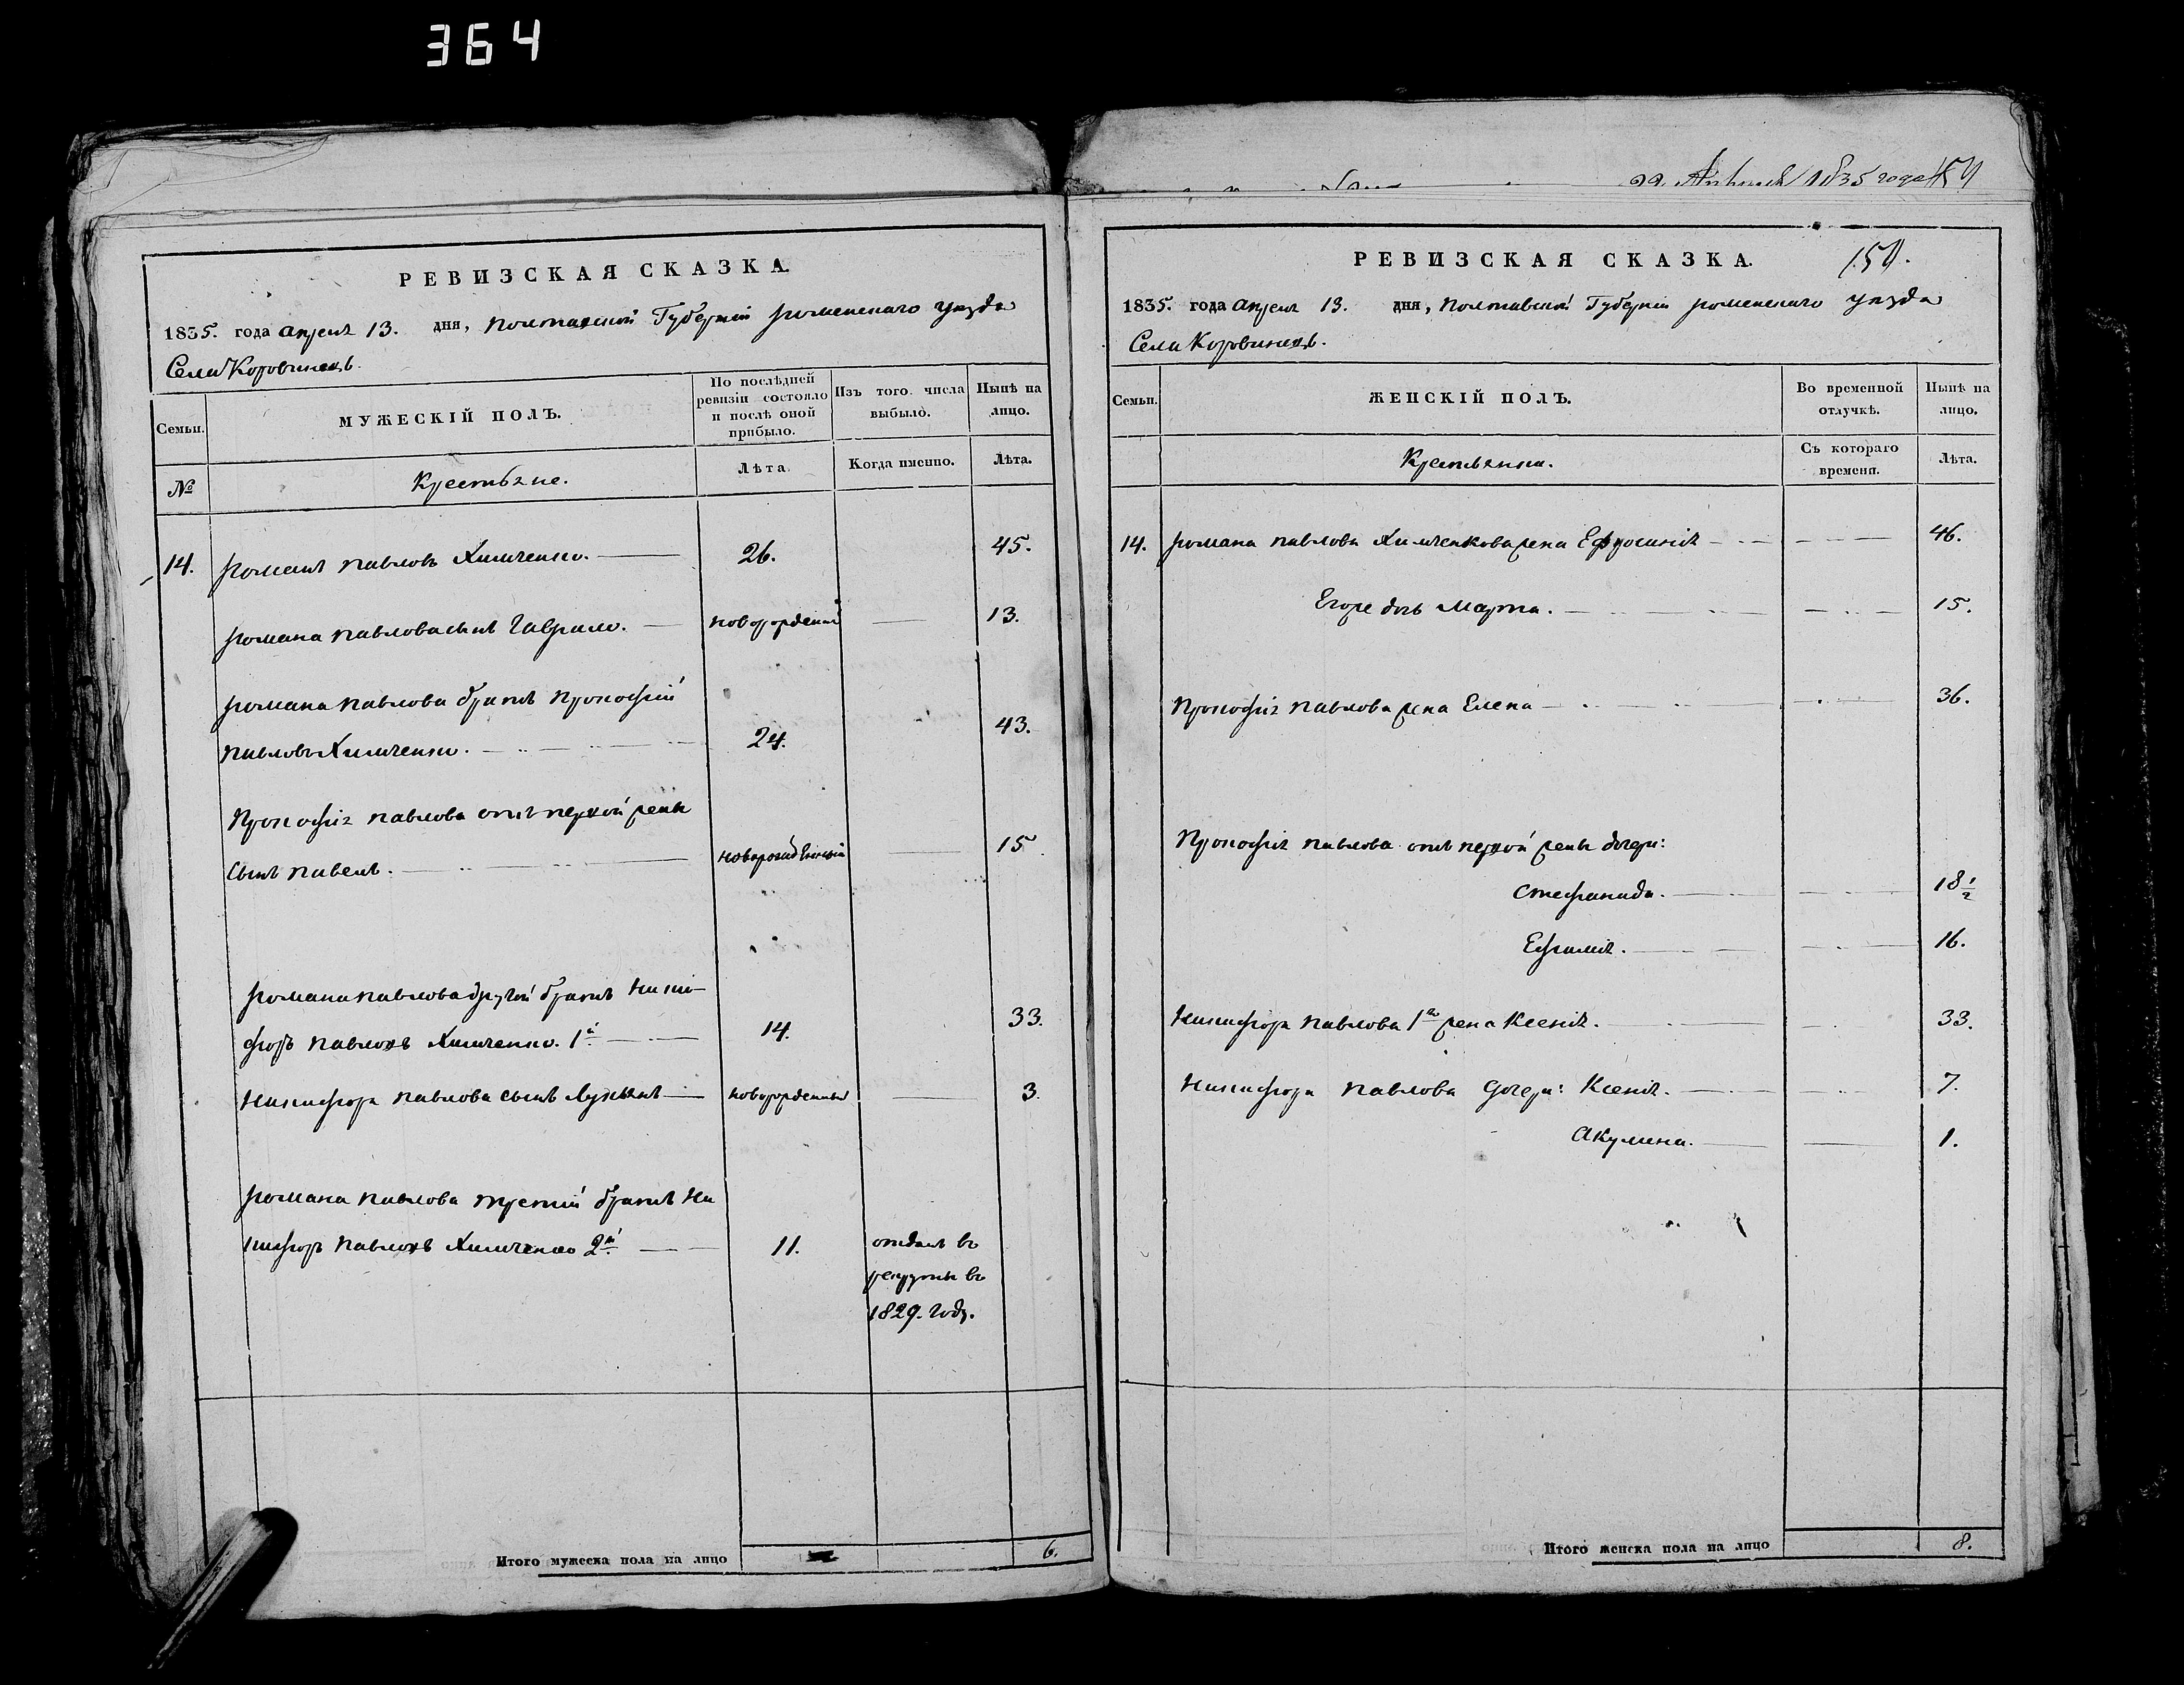 364
22 Апреля 1835 года
РЕВИЗСКАЯ СКАЗКА.
1835. года Апреля 13. дня, Полтавской Губернии роменского уезда
Села Коровинецъ.
Семьи.
МУЖЕСКІЙ ПОЛЪ.
По послѣдней ревизіи состояло и послѣ оной прибыло.
Изъ того числа выбыло.
Нынѣ на лицо.
№
Крестьяне.
Лѣта.
Когда именно.
Лѣта.
14. романъ павловъ Химченко. 26. 45.
романа павлова сынъ Гаврило. новорожденый 13.
романа павлова братъ прокофий
павловъ Химченко. 24. 43.
Прокофия павлова отъ первой жены
сынъ павелъ. новорожденный 15
романа павлова другой братъ Ники-
форъ павловъ Химченко. 1й 14. 33.
Никифора павлова сынъ Лукьянъ новорожденный 3.
романа павлова третий братъ Ни
кифоръ павловъ Химченко 2й 11. отданъ въ
рекруты въ
1829. году.
Итого мужеска пола на лицо 6.
РЕВИЗСКАЯ СКАЗКА.
1835. года Апреля 13. дня, Полтавской Губернии роменского уезда
Села Коровинецъ.
Семьи.
ЖЕНСКІЙ ПОЛЪ.
Во временной отлучкѣ.
Нынѣ на лицо.
Крестьянки.
Съ котораго времени.
Лѣта.
14. романа павлова Химченкова жена Ефросиния 46.
Егоже дочь Марта. 15.
Прокофия павлова жена Елена 36.
Прокофия павлова отъ первой жены дочери:
Стефанида. 18½
Ефимия. 16.
Никифора павлова 1го жена Ксения. 33.
Никифора павлова дочери: Ксения. 7.
Акулина. 1.
Итого женска пола на лицо 8.